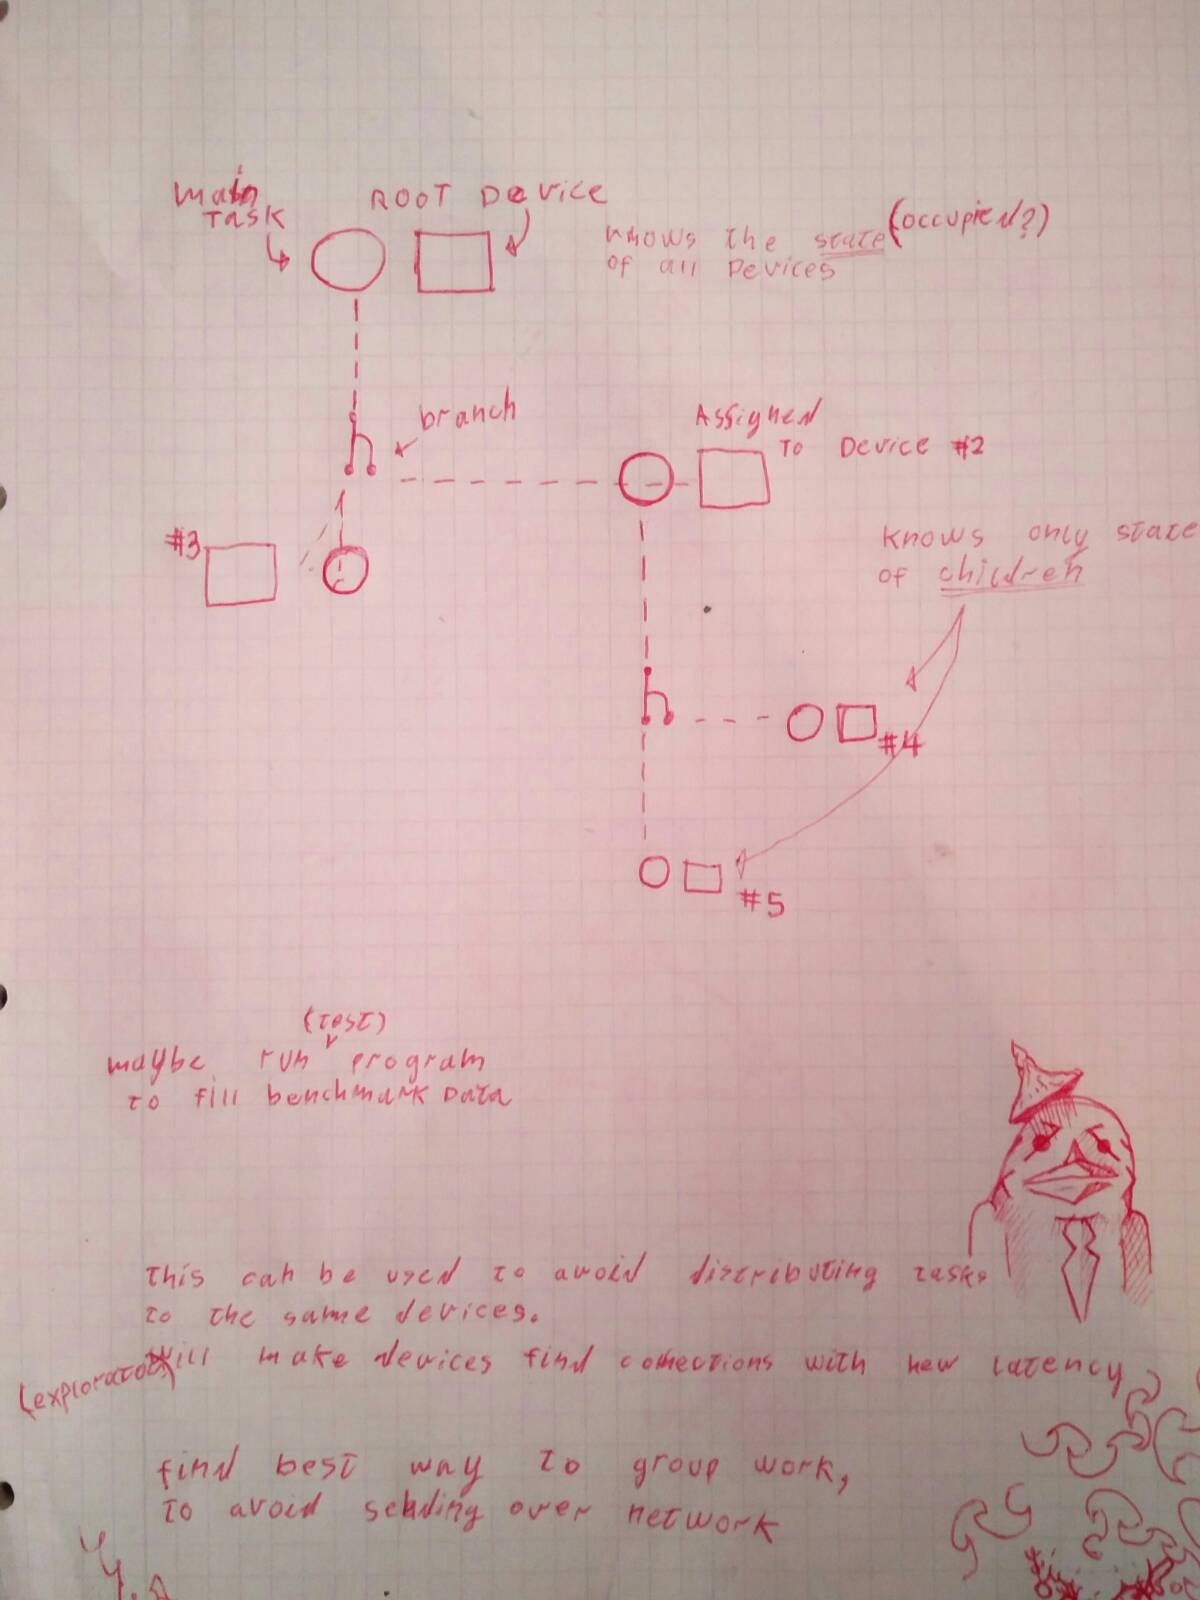 main
task
ROOT Device
knows the state (occupied?)
of all Devices
branch
Assigned
to Device #2
#3
knows only state
of children
#4
#5
(test)
maybe run program
to fill benchmark data
this can be used to avoid distributing tasks
to the same devices.
will make devices find connections with new latency
find best way to group work,
to avoid sending over network